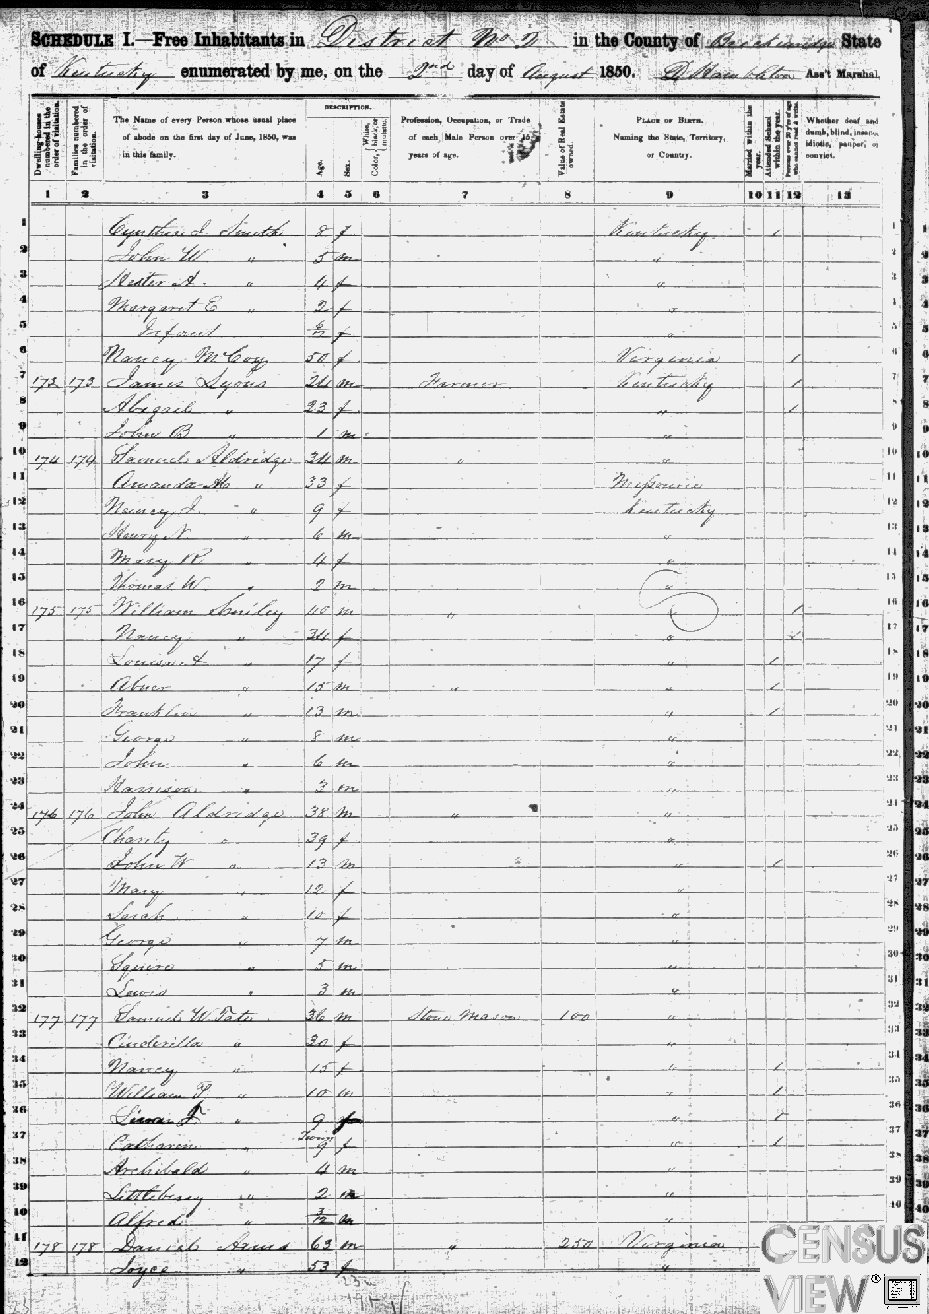 SCHEDULE I.—Free Inhabitants in District No 2 in the County of Breckinridge State
of Kentucky enumerated by me, on the 2nd day of August 1850. Ass't Marshal.
DESCRIPTION.
Dwelling-houses numbered in the order of visitation.
Families numbered in the order of visitation.
The Name of every Person whose usual place of abode on the first day of June, 1850, was in this family.
Age.
Sex.
White, black, or mulatto.
Color,
Profession, Occupation, or Trade of each Male Person over 15 years of age.
Value of Real Estate owned.
PLACE OF BIRTH. Naming the State, Territory, or Country.
Married within the year.
Attended School within the year.
Persons over 20 y'rs of age who cannot read & write.
Whether deaf and dumb, blind, insane, idiotic, pauper, or convict.
1 2 3 4 5 6 7 8 9 10 11 12 13
1 Cynthia J. Smith 8 f Kentucky 1 1
2 John W " 5 m " 2
3 Hester A. " 4 f " 3
4 Margaret E " 2 f " 4
5 Infant f " 5
6 Nancy McCoy 50 f Virginia 1 6
7 173 173 James Lyons 24 m Farmer Kentucky 1 7
8 Abigail " 23 f " 1 8
9 John B " 1 m " 9
10 174 174 Samuel Aldridge 34 m " " 10
11 Amanda M " 33 f Missouri 11
12 Nancy J. " 9 f Kentucky 12
13 Henry N " 6 m " 13
14 Mary R " 4 f " 14
15 Thomas W " 2 m " 15
16 175 175 William Smiley 40 m " " 1 16
17 Nancy " 34 f " 1 17
18 Louisa A " 17 f " 1 18
19 Abner " 15 m " " 1 19
20 Franklin " 13 m " 1 20
21 George " 8 m " 21
22 John " 6 m " 22
23 Harrison " 3 m " 23
24 176 176 John Aldridge 38 m " " 24
25 Charity " 39 f " 25
26 John W " 13 m " 1 26
27 Mary " 12 f " 27
28 Sarah " 10 f " 28
29 George " 7 m " 29
30 Squire " 5 m " 30
31 Lewis " 3 m " 31
32 177 177 Samuel W Tate 36 m Stone Mason 100 " 32
33 Cinderilla " 30 f " 33
34 Nancy " 15 f " 1 34
35 William P " 10 m " 1 35
36 " 9 f " 1 36
37 Catharine " Twins 9 f " 1 37
38 Archibald " 4 m " 38
39 Littleberry " 2 m " 39
40 Alfred " 3/12 m " 40
41 178 178 Daniel Arms 63 m " 250 Virginia
42 Joyce " 53 f "
CENSUS
VIEW®